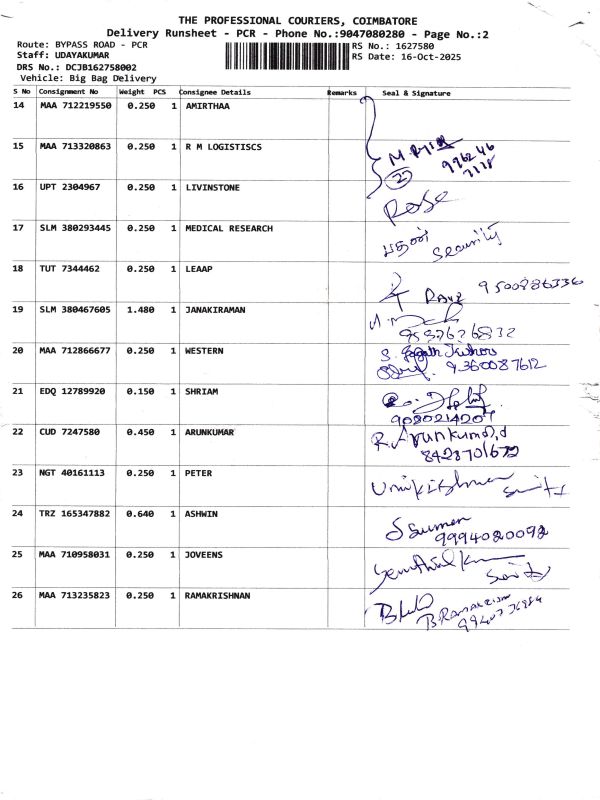 THE PROFESSIONAL COURIERS, COIMBATORE
Delivery Runsheet - PCR - Phone No.:9047080280 - Page No.:2
Route: BYPASS ROAD - PCR
Staff: UDAYAKUMAR
DRS No.: DCJB162758002
Vehicle: Big Bag Delivery
RS No.: 1627580
RS Date: 16-Oct-2025
S No Consignment No Weight PCS Consignee Details Remarks Seal & Signature
14 MAA 712219550 0.250 1 AMIRTHAA
15 MAA 713320863 0.250 1 R M LOGISTISCS
99626 46
7118
27
16 UPT 2304967 0.250 1 LIVINSTONE
Rose
17 SLM 380293445 0.250 1 MEDICAL RESEARCH
Security
18 TUT 7344462 0.250 1 LEAAP
9500886336
19 SLM 380467605 1.480 1 JANAKIRAMAN
20 MAA 712866677 0.250 1 WESTERN
9360087612
21 EDQ 12789920 0.150 1 SHRIAM
22 CUD 7247580 0.450 1 ARUNKUMAR
8428701672
23 NGT 40161113 0.250 1 PETER
24 TRZ 165347882 0.640 1 ASHWIN
S Suman
9994020092
25 MAA 710958031 0.250 1 JOVEENS
26 MAA 713235823 0.250 1 RAMAKRISHNAN